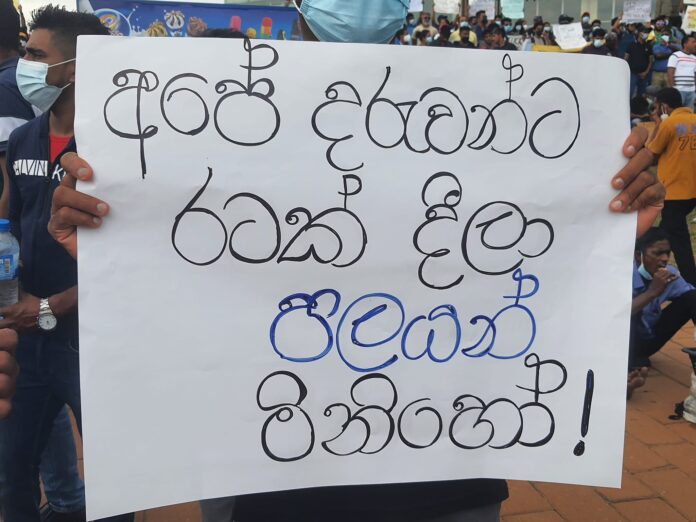 අපේ දරුවන්ට
රටක් දීලා
පලයන්
මිනිහෝ!